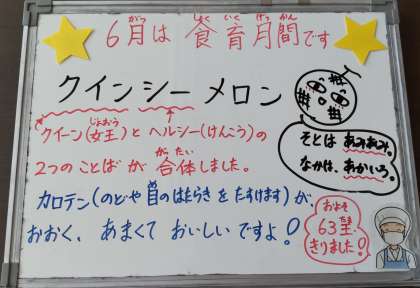 6月は食育月間です
クインシーメロン
クイーン(女王)とヘルシー(けんこう)の
2つのことばが合体しました。
カロテン(のどや目のはたらきをたすけます)が、
おおく、あまくておいしいですよ!
そとはあみあみ。
なかは、あかいろ。
およそ
63玉
きりました!